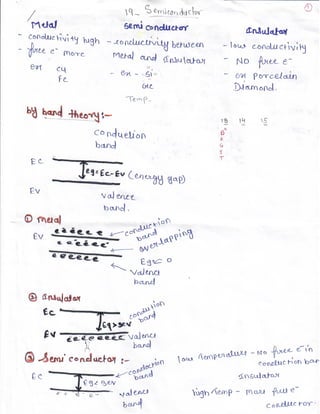 19_ Semiconductor
①
Metal
- conductivity high
- free e⁻ more
ex cu
Fe
Semi conductor
- conductivity between
Metal and Insulator
- ex - Si -
Ge
Temp-
Insulator
- low conductivity
- NO free e⁻
- ex porcelain
Diamond.
by band theory:-
13 14 15
B
conduction
band
Ec
Eg = Ec-Ev (energy gap)
Ev
valence
band.
① metal
conduction
band
Ev
overlapping
Eg = 0
valence
band
② Insulator
Ec
conduction
band
Eg>5ev
Ev
valence
band
③ Semi conductor :-
Ec
conduction
band
Eg<5ev
valence
band
low temperature - No free e⁻ in
conduction ban
Insulator
high temp - more free e⁻
conductor.